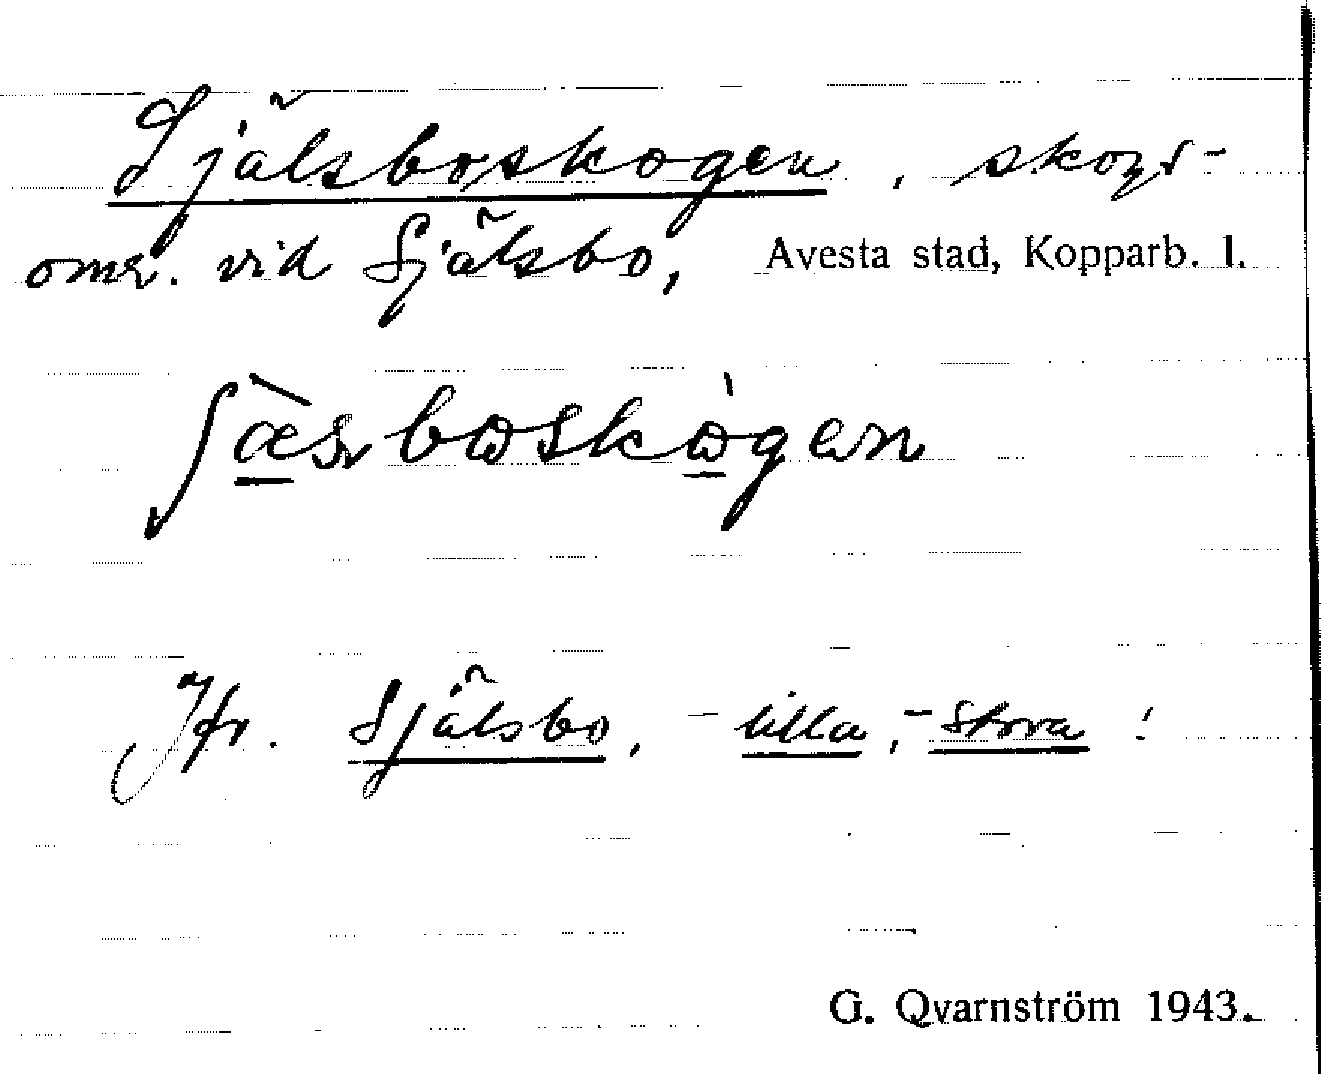 Själsboskogen, skogs-
omr. vid Själsbo, Avesta stad, Kopparb. l.
ʃæ̀sboskògen
Jfr. Själsbo, - lilla, - Stora !
G. Qvarnström 1943.